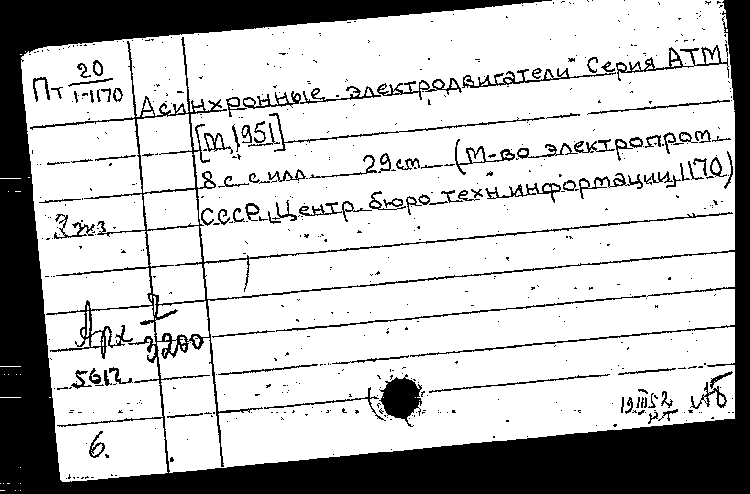 Пт 20
1-1170
Асинхронные электродвигатели Серия АТМ
[М, 1951]
8 с. с илл. 29 см. (М-во электропром.
СССР, Центр. бюро техн. информации, 1170)
3 экз.
Арх.
3200
5612.
19 III 52
АБ
6.